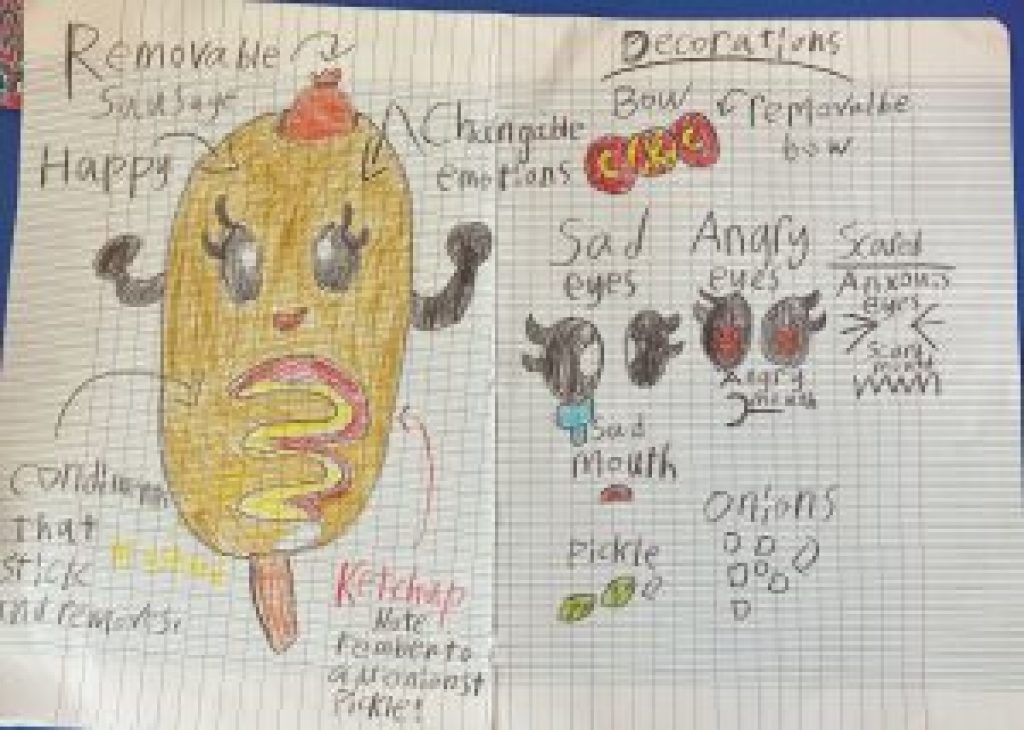 Removable
Sausage
Happy
Changable
emotions
condiments
that
stick
and removes.
Ketchup
Note
rember to
Pickle!
Decorations
Bow
removalbe
bow
Sad
eyes
Angry
eyes
Scared
Anxous
eyes
Scared
mouth
Angry
mouth
Sad
mouth
Pickle
Onions